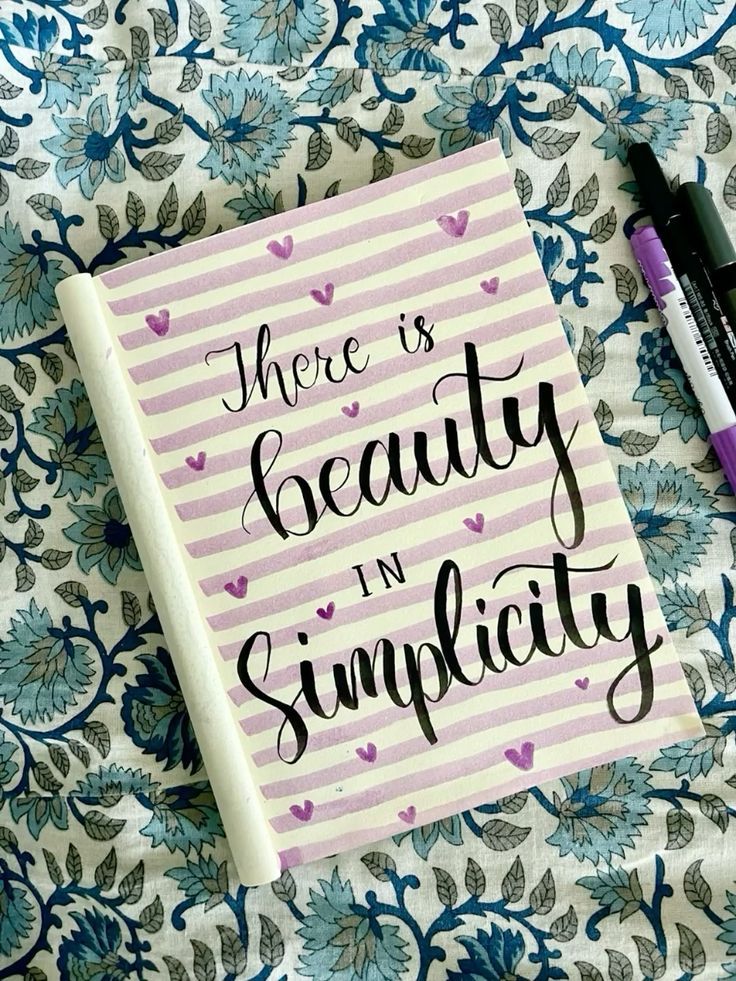 There is
beauty
IN
Simplicity